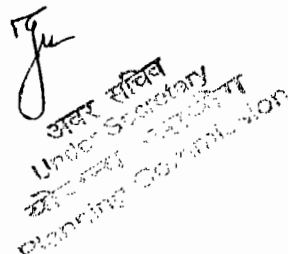 अवर सचिव
Under Secretary
योजना आयोग
Planning Commission